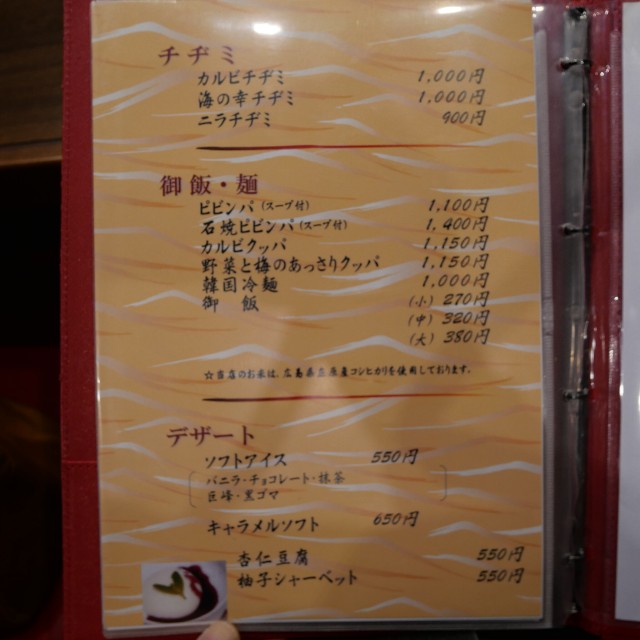 チヂミ
カルビチヂミ 1,000円
海の幸チヂミ 1,000円
ニラチヂミ 900円
御飯・麺
ビビンパ(スープ付) 1,100円
石焼ビビンパ(スープ付) 1,400円
カルビクッパ 1,150円
野菜と梅のあっさりクッパ 1,150円
韓国冷麺 1,000円
御飯 (小) 270円
(中) 320円
(大) 380円
☆当店のお米は、広島県庄原産コシヒカリを使用しております。
デザート
ソフトアイス 550円
バニラ・チョコレート・抹茶
巨峰・黒ゴマ
キャラメルソフト 650円
杏仁豆腐 550円
柚子シャーベット 550円